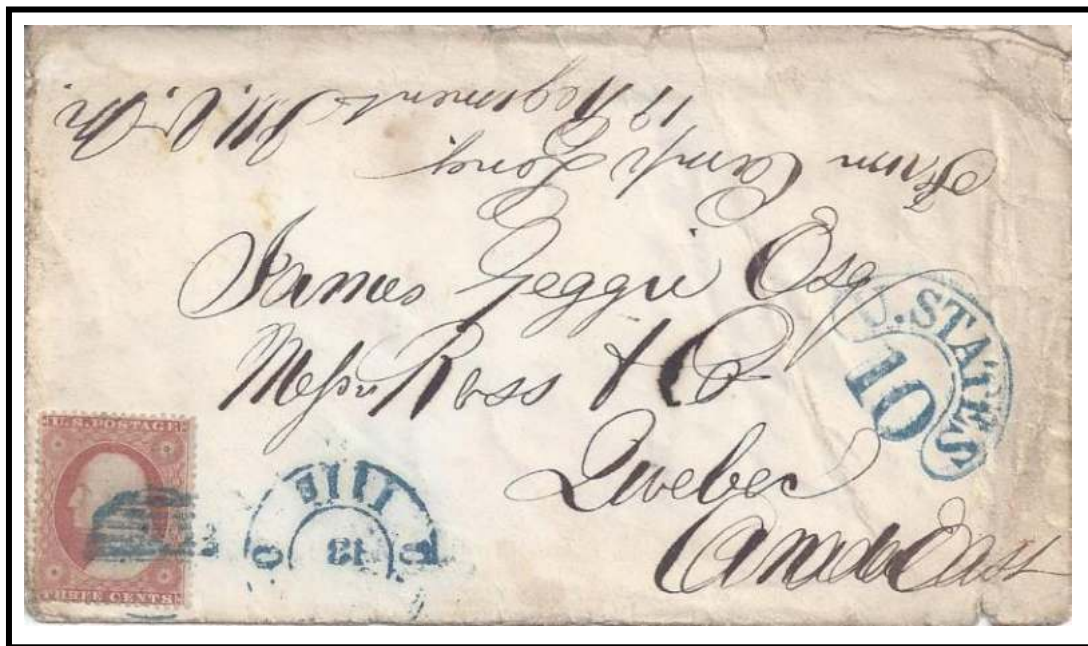 From Camp Long
17 Regiment Ill. V.
James Geggie Esq
Messrs Ross & Co
Quebec
Canada East
U. STATES
10
U.S. POSTAGE
THREE CENTS
13